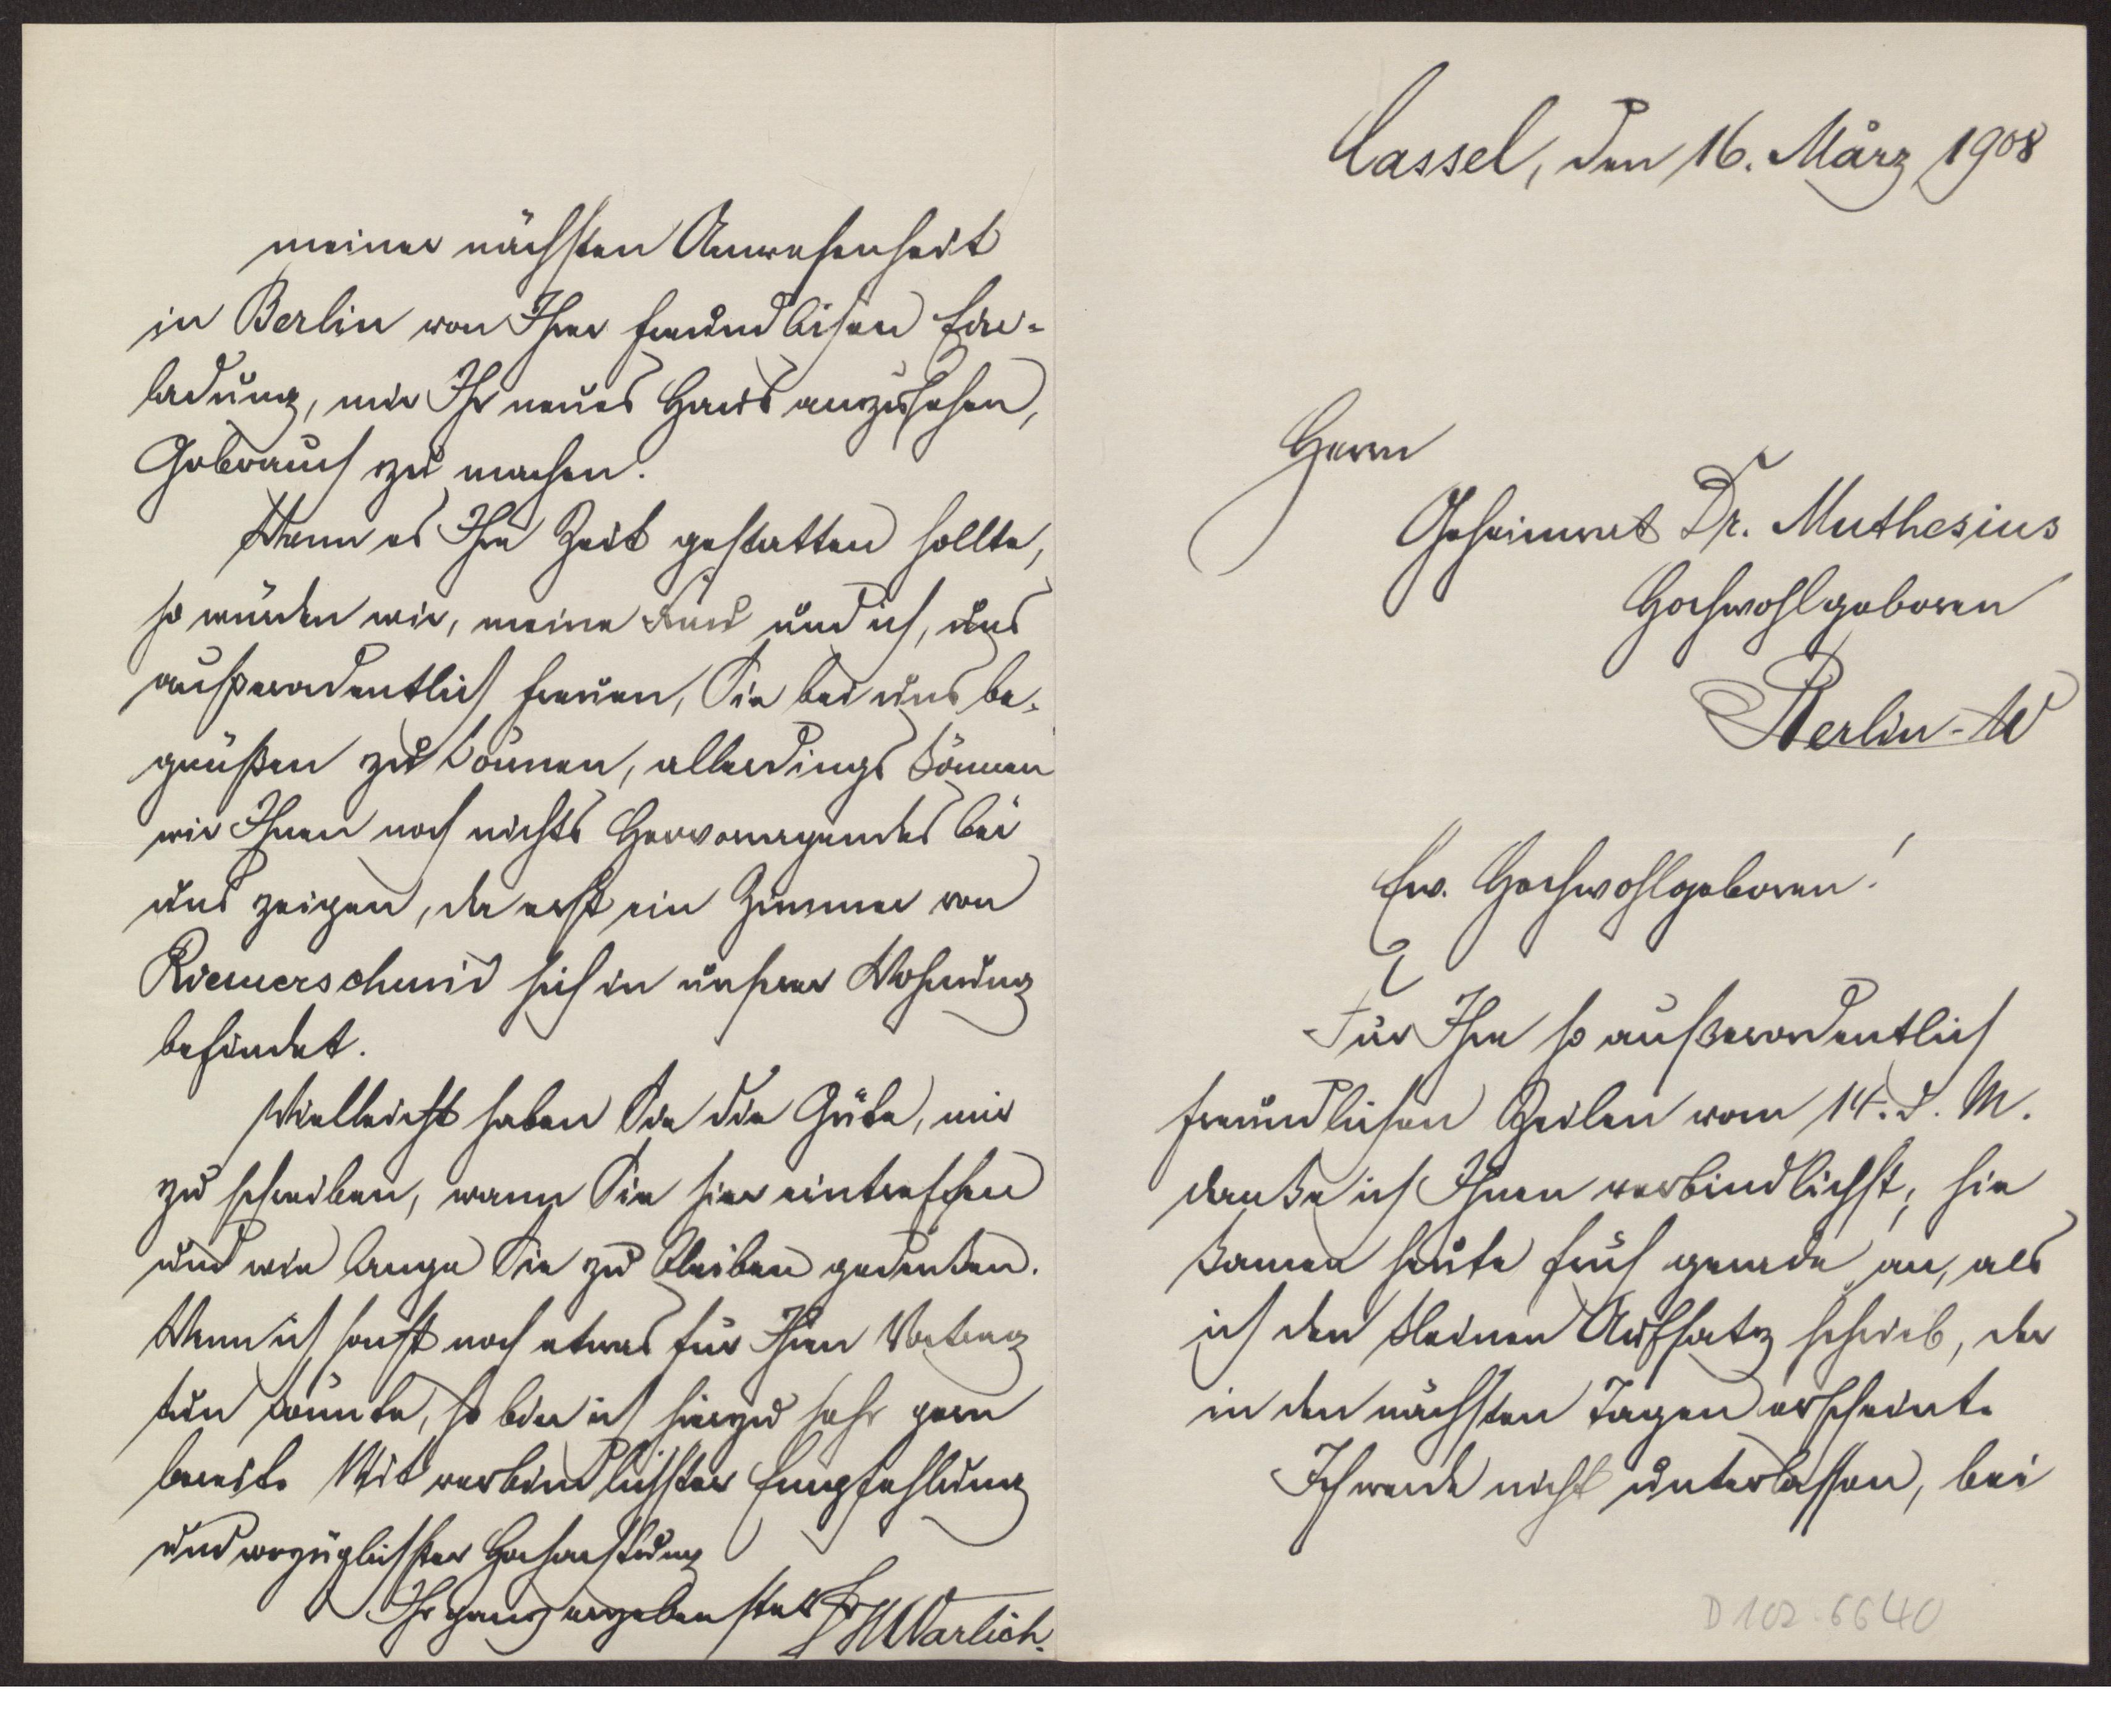 Cassel, den 16. März 1908
Herrn
Geheimrat Dr. Muthesius
Hochwohlgeboren
Berlin-W
Ew. Hochwohlgeboren!
Für Ihre so außerordentlich
freundlichen Zeilen vom 14. d. M.
danke ich Ihnen verbindlichst; sie
kamen heute früh gerade an, als
ich den kleinen Aufsatz schrieb, der
in den nächsten Tagen erscheint.
Ich werde nicht unterlassen, bei
D 102-6640
meiner nächsten Anwesenheit
in Berlin von Ihrer freundlichen Ein-
ladung, mir Ihr neues Haus anzusehen,
Gebrauch zu machen.
Wenn es Ihre Zeit gestatten sollte,
so würden wir, meine Frau und ich, uns
außerordentlich freuen, Sie bei uns be-
grüßen zu können, allerdings können
wir Ihnen noch nichts Hervorragendes bei
uns zeigen, da erst ein Zimmer von
Riemerschmid sich in unserer Wohnung
befindet.
Vielleicht haben Sie die Güte, mir
zu schreiben, wann Sie hier eintreffen
und wie lange Sie zu bleiben gedenken.
Wenn ich sonst noch etwas für Ihren Vortrag
tun könnte, so bin ich hierzu sehr gern
bereit. Mit verbindlichster Empfehlung
und vorzüglichster Hochachtung
Ihr ganz ergebenster Warlich.